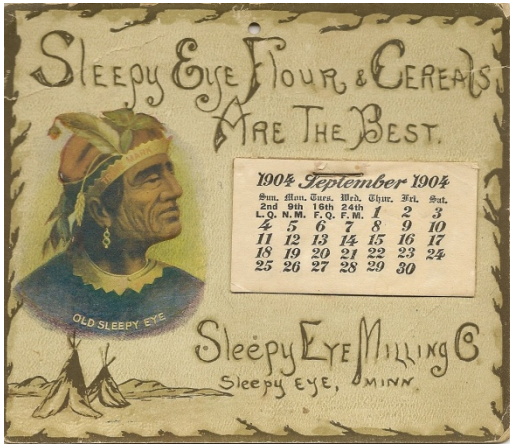 Sleepy Eye Flour & Cereals
Are The Best.
1904 September 1904
Sun. Mon. Tues. Wed. Thur. Fri. Sat.
2nd 9th 16th 24th
L.Q. N.M. F.Q. F.M. 1 2 3
4 5 6 7 8 9 10
11 12 13 14 15 16 17
18 19 20 21 22 23 24
25 26 27 28 29 30
OLD SLEEPY EYE
Sleepy Eye Milling Co
Sleepy Eye, Minn.